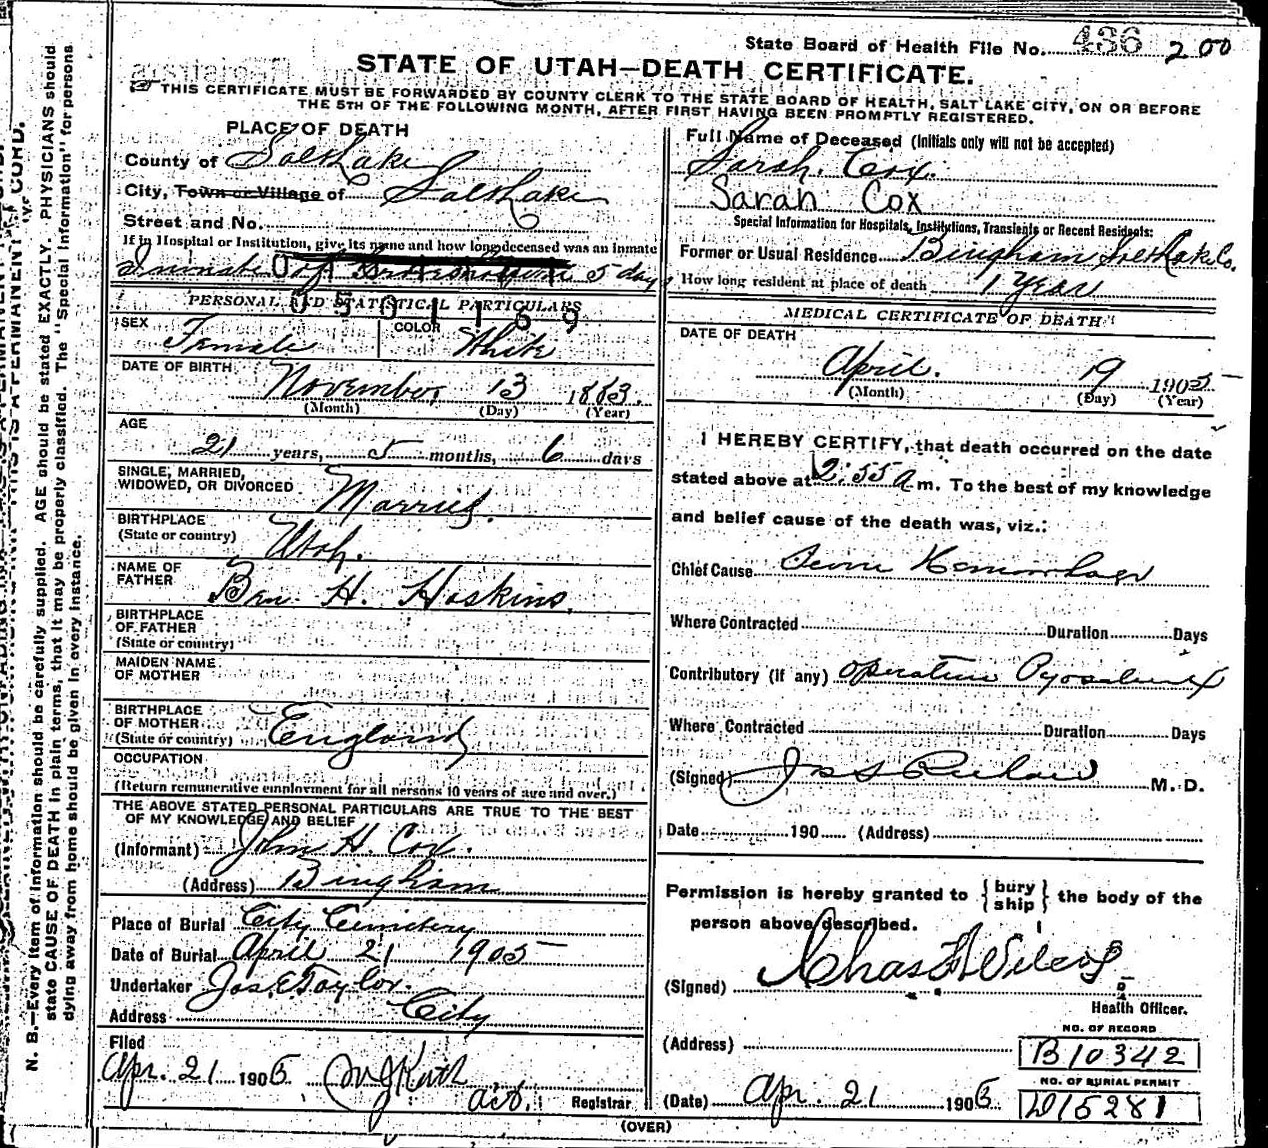 State Board of Health File No. 436 200
STATE OF UTAH—DEATH CERTIFICATE.
THIS CERTIFICATE MUST BE FORWARDED BY COUNTY CLERK TO THE STATE BOARD OF HEALTH, SALT LAKE CITY, ON OR BEFORE
THE 5TH OF THE FOLLOWING MONTH, AFTER FIRST HAVING BEEN PROMPTLY REGISTERED.
PLACE OF DEATH
County of Salt Lake
City, Town or Village of Salt Lake
Street and No.
If in Hospital or Institution, give its name and how long deceased was an inmate
Inmate of 5 days
0501189
PERSONAL AND STATISTICAL PARTICULARS
SEX Female COLOR White
DATE OF BIRTH
November 13 1883
(Month) (Day) (Year)
AGE
21 years, 5 months, 6 days
SINGLE, MARRIED,
WIDOWED, OR DIVORCED Married.
BIRTHPLACE
(State or country) Utah.
NAME OF
FATHER Ben. H. Hoskins.
BIRTHPLACE
OF FATHER
(State or country)
MAIDEN NAME
OF MOTHER
BIRTHPLACE
OF MOTHER
(State or country) England
OCCUPATION
(Return remunerative employment for all persons 10 years of age and over.)
THE ABOVE STATED PERSONAL PARTICULARS ARE TRUE TO THE BEST
OF MY KNOWLEDGE AND BELIEF
(Informant) John H. Cox.
(Address) Bingham
Place of Burial City Cemetery
Date of Burial April 21 1905
Undertaker Jos E Taylor.
Address City
Filed
Apr. 21 1905
act. Registrar
Full Name of Deceased (Initials only will not be accepted)
Sarah. Cox.
Sarah Cox
Special Information for Hospitals, Institutions, Transients or Recent Residents:
Former or Usual Residence Bingham Salt Lake Co.
How long resident at place of death 1 Year
MEDICAL CERTIFICATE OF DEATH
DATE OF DEATH
April. 19 1905
(Month) (Day) (Year)
I HEREBY CERTIFY, that death occurred on the date
stated above at 2:55 A m. To the best of my knowledge
and belief cause of the death was, viz.:
Chief Cause Hemorrhage
Where Contracted Duration Days
Contributory (if any) operation Pyosalpinx
Where Contracted Duration Days
(Signed) M. D.
Date 190 (Address)
Permission is hereby granted to {bury ship} the body of the
person above described.
(Signed) Chas F Wilcox
Health Officer.
(Address)
NO. OF RECORD
B10342
NO. OF BURIAL PERMIT
D15281
(Date) Apr. 21 1905
(OVER)
N. B.—Every item of information should be carefully supplied. AGE should be stated EXACTLY. PHYSICIANS should
state CAUSE OF DEATH in plain terms, that it may be properly classified. The "Special Information" for persons
dying away from home should be given in every instance.